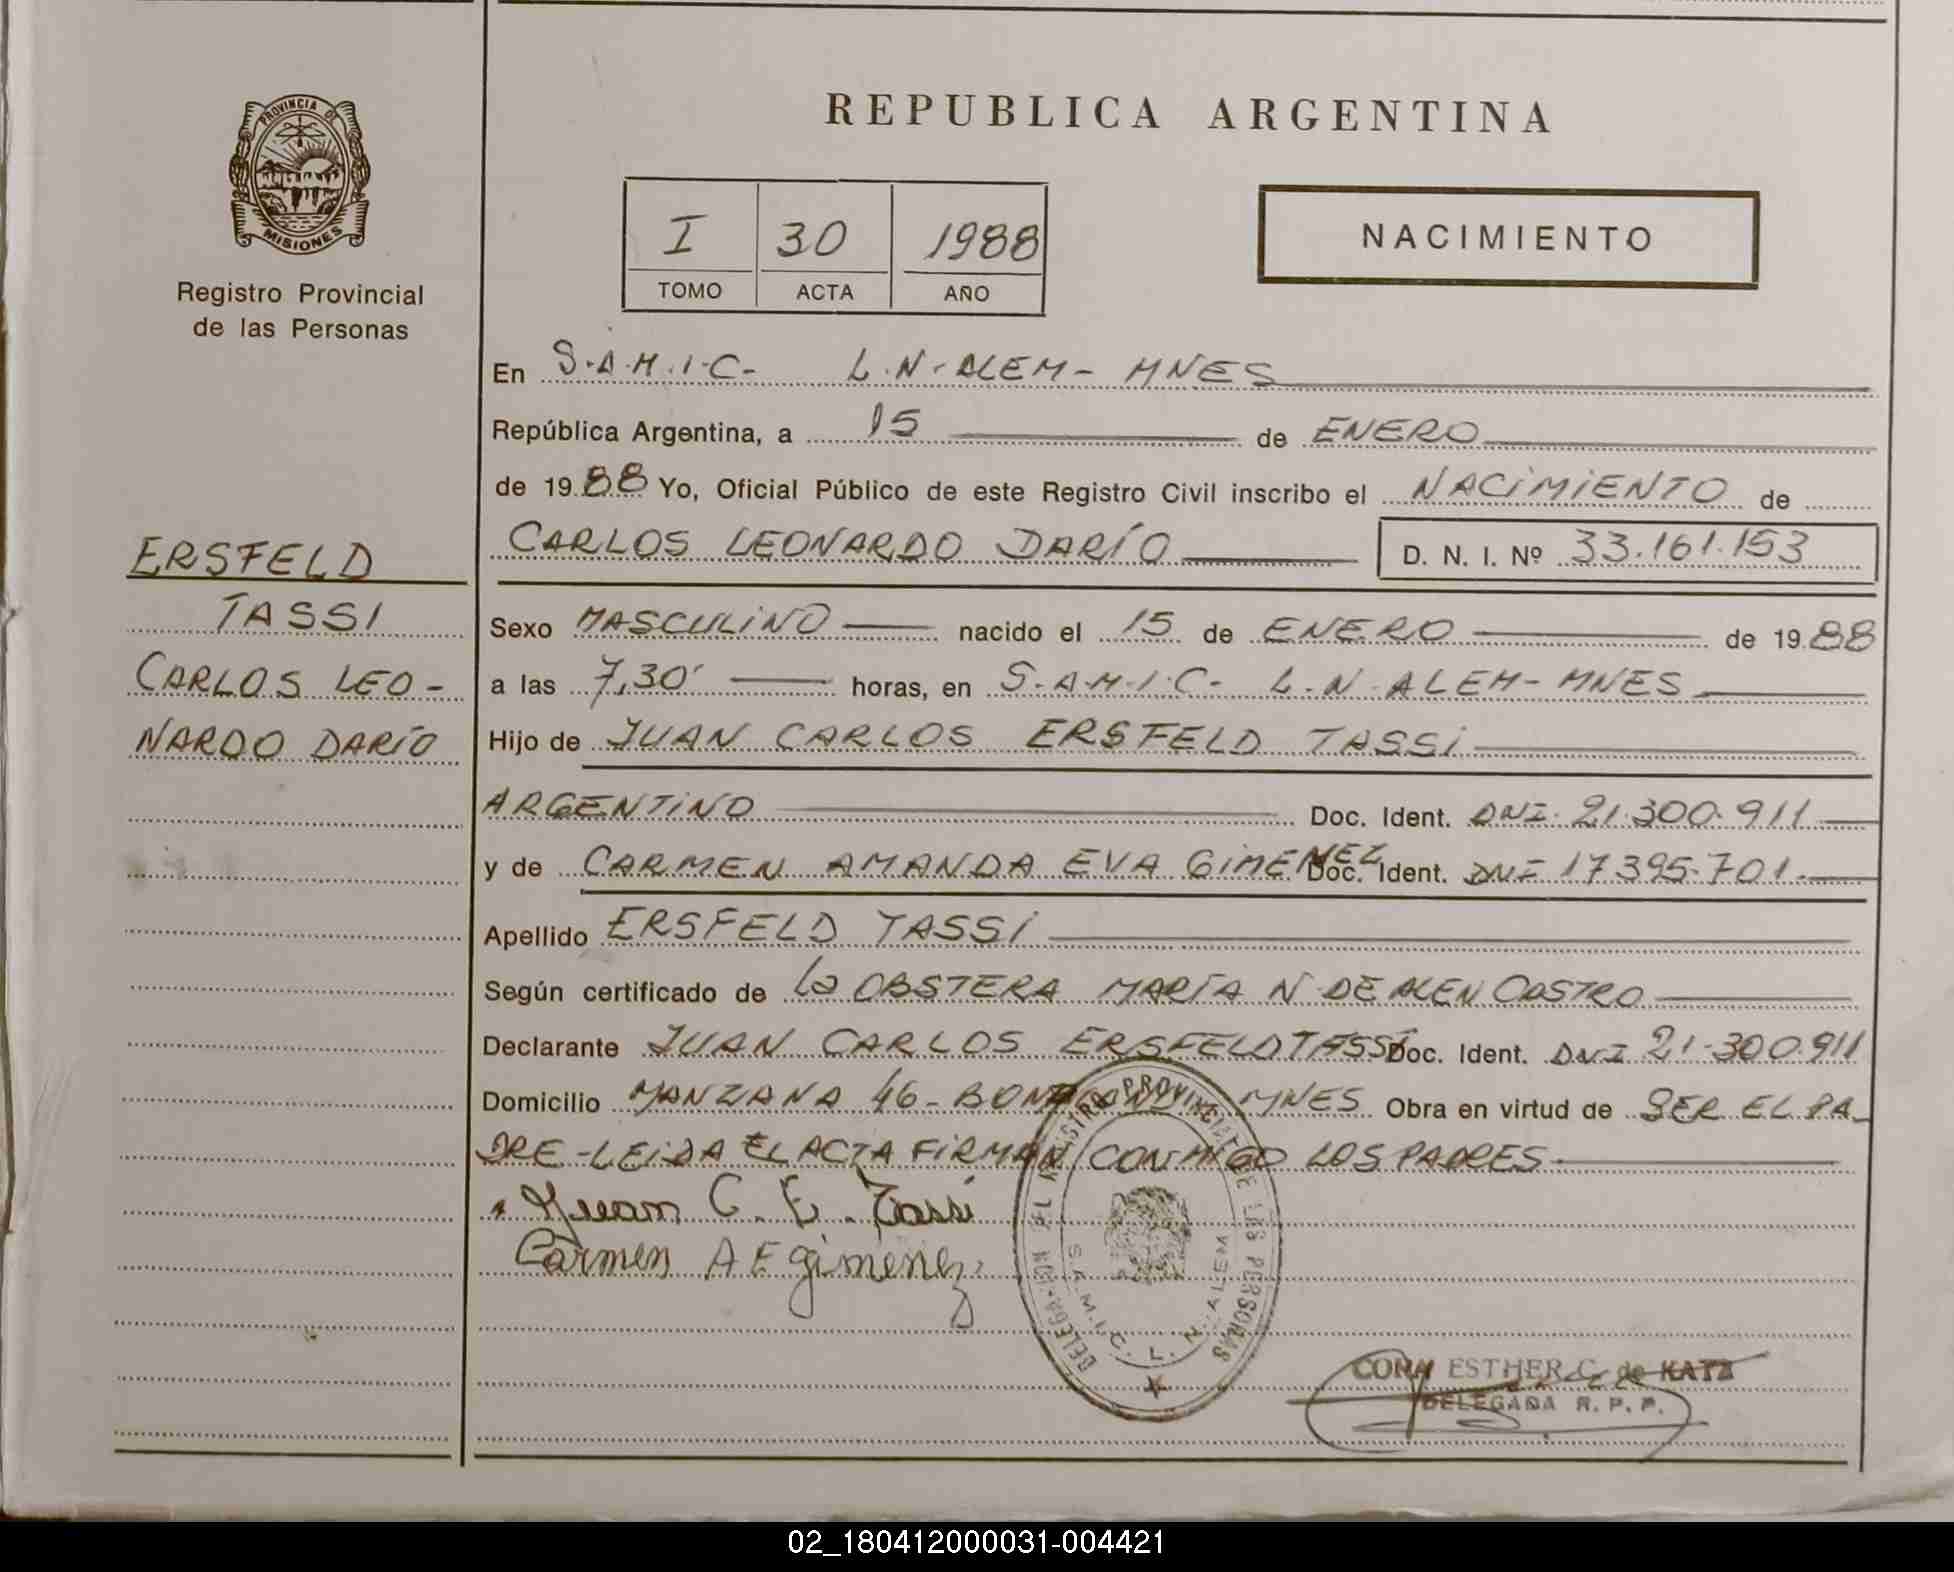 REPUBLICA ARGENTINA
PROVINCIA DE
MISIONES
Registro Provincial
de las Personas
I 30 1988
TOMO ACTA AÑO
NACIMIENTO
En S.A.M.I.C- L.N-ALEM- MNES
República Argentina, a 15 de ENERO
de 1988 Yo, Oficial Público de este Registro Civil inscribo el NACIMIENTO de
CARLOS LEONARDO DARÍO D. N. I. Nº 33.161.153
ERSFELD
TASSI
CARLOS LEO-
NARDO DARÍO
Sexo MASCULINO nacido el 15 de ENERO de 1988
a las 7,30' horas, en S.A.M.I.C- L.N-ALEM-MNES
Hijo de JUAN CARLOS ERSFELD TASSI
ARGENTINO Doc. Ident. DNI. 21.300.911
y de CARMEN AMANDA EVA GIMENEZ Doc. Ident. DNI 17.395.701.
Apellido ERSFELD TASSI
Según certificado de la OBSTERA MARÍA N DE ALEN CASTRO
Declarante JUAN CARLOS ERSFELD TASSI Doc. Ident. DNI 21.300.911
Domicilio MANZANA 46- MNES Obra en virtud de SER EL PA-
DRE-LEIDA EL ACTA FIRMAN CONMIGO LOS PADRES.
Juan C. E. Tassi
Carmen A E Gimenez
DELEGACION DEL REGISTRO PROVINCIAL DE LAS PERSONAS
S.A.M.I.C. L. N. ALEM
ESTHER C. de KATZ
DELEGADA R. P. P.
02_180412000031-004421